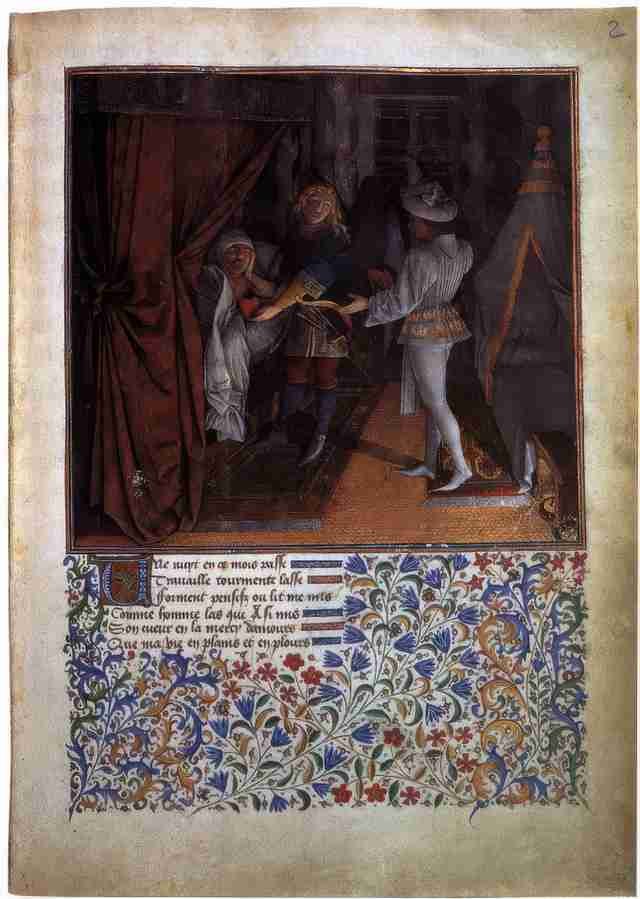 2
Une nuyt en ce mois passe
Travaille tourmente lasse
fforment pensifz ou lit me mis
Comme homme las qui A si mis
Son cueur en la mercy damours
Que ma vie en plains et en plours